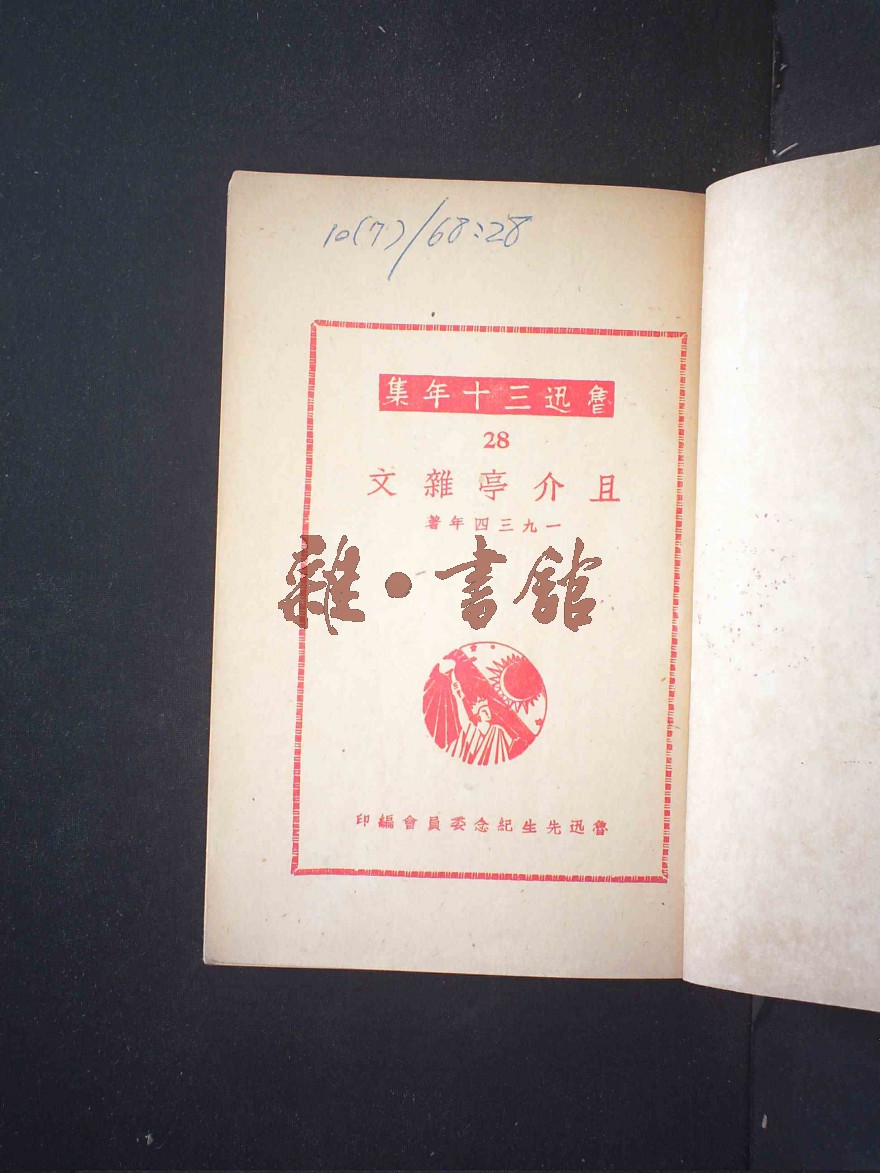 10(7)/68:28
魯迅三十年集
28
且介亭雜文
一九三四年著
雜·書館
魯迅先生紀念委員會編印